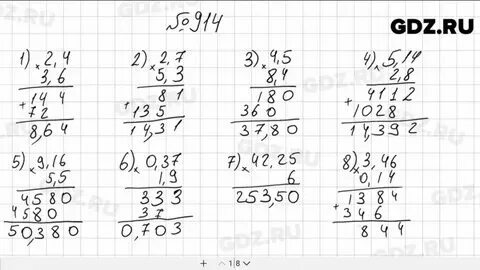 №914
GDZ.RU
1) 2,4
× 3,6
144
+ 72
8,64
2) 2,7
× 5,3
81
+ 135
14,31
3) 4,5
× 8,4
180
360
37,80
4) 5,14
× 2,8
4112
+ 1028
14,392
5) 9,16
× 5,5
4580
4580
50,380
6) 0,37
× 1,9
333
37
0,703
7) 42,25
× 6
253,50
8) 3,46
× 0,14
1384
+ 346
844
+ 1|8